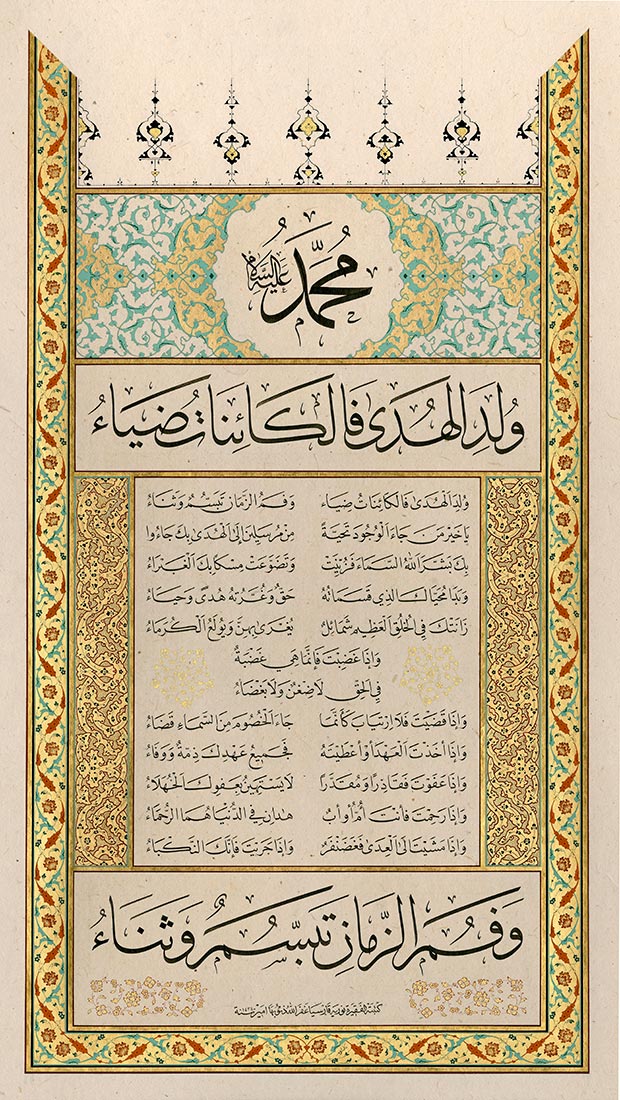 مُحَمَّدٌ عليه السلام
وُلِدَ الهُدَى فَالكَائِنَاتُ ضِيَاءُ
وُلِدَ الهُدَى فَالكَائِنَاتُ ضِيَاءُ وَفَمُ الزَّمَانِ تَبَسُّمٌ وَثَنَاءُ
يَا خَيْرَ مَنْ جَاءَ الوُجُودَ تَحِيَّةً مِنْ مُرْسَلِينَ إِلَى الهُدَى بِكَ جَاءُوا
بِكَ بَشَّرَ اللهُ السَّمَاءَ فَزُيِّنَتْ وَتَضَوَّعَتْ مِسْكًا بِكَ الغَبْرَاءُ
وَبَدَا مُحَيَّاكَ الَّذِي قَسَمَاتُهُ حَقٌّ وَغُرَّتُهُ هُدًى وَحَيَاءُ
زَانَتْكَ فِي الخُلُقِ العَظِيمِ شَمَائِلٌ يُغْرَى بِهِنَّ وَيُولَعُ الكُرَمَاءُ
وَإِذَا غَضِبْتَ فَإِنَّمَا هِيَ غَضْبَةٌ
فِي الحَقِّ لَا ضِغْنٌ وَلَا بَغْضَاءُ
وَإِذَا قَضَيْتَ فَلَا ارْتِيَابَ كَأَنَّمَا جَاءَ الخُصُومَ مِنَ السَّمَاءِ قَضَاءُ
وَإِذَا أَخَذْتَ العَهْدَ أَوْ أَعْطَيْتَهُ فَجَمِيعُ عَهْدِكَ ذِمَّةٌ وَوَفَاءُ
وَإِذَا عَفَوْتَ فَقَادِرًا وَمُقَدَّرًا لَا يَسْتَهِينُ بِعَفْوِكَ الجُهَلَاءُ
وَإِذَا رَحِمْتَ فَأَنْتَ أُمٌّ أَوْ أَبٌ هٰذَانِ فِي الدُّنْيَا هُمَا الرُّحَمَاءُ
وَإِذَا مَشَيْتَ إِلَى العِدَى فَغَضَنْفَرٌ وَإِذَا جَرَيْتَ فَإِنَّكَ النَّكْبَاءُ
وَفَمُ الزَّمَانِ تَبَسُّمٌ وَثَنَاءُ
كتبته الفقيرة نورية قارسيا غفر الله ذنوبها امين